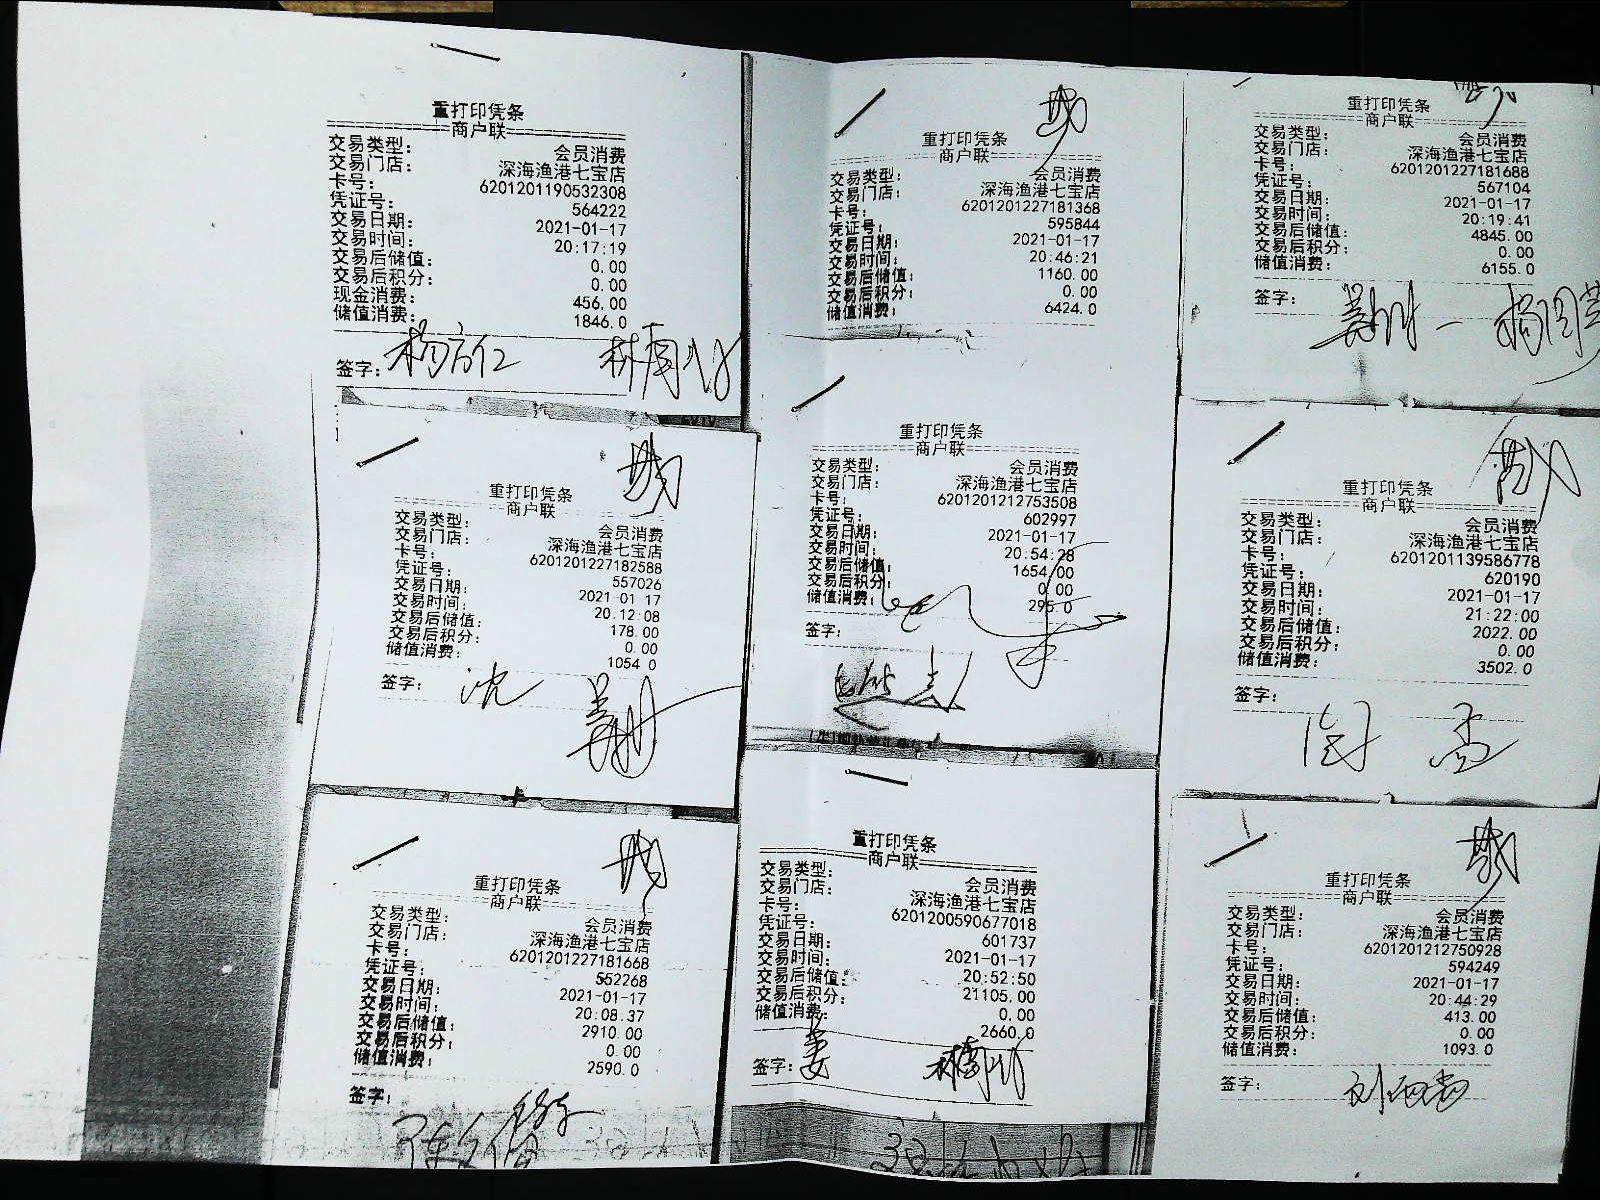 重打印凭条
商户联
交易类型： 会员消费
交易门店： 深海渔港七宝店
卡号： 6201201190532308
凭证号： 564222
交易日期： 2021-01-17
交易时间： 20:17:19
交易后储值： 0.00
交易后积分： 0.00
现金消费： 456.00
储值消费： 1846.0
签字：
重打印凭条
商户联
交易类型： 会员消费
交易门店： 深海渔港七宝店
卡号： 6201201227181368
凭证号： 595844
交易日期： 2021-01-17
交易时间： 20:46:21
交易后储值： 1160.00
交易后积分： 0.00
储值消费： 6424.0
重打印凭条
商户联
交易类型： 会员消费
交易门店： 深海渔港七宝店
卡号： 6201201227181688
凭证号： 567104
交易日期： 2021-01-17
交易时间： 20:19:41
交易后储值： 4845.00
交易后积分： 0.00
储值消费： 6155.0
签字：
重打印凭条
商户联
交易类型： 会员消费
交易门店： 深海渔港七宝店
卡号： 6201201227182588
凭证号： 557026
交易日期： 2021 01 17
交易时间： 20.12:08
交易后储值： 178.00
交易后积分： 0.00
储值消费： 1054 0
签字： 沈
重打印凭条
商户联
交易类型： 会员消费
交易门店： 深海渔港七宝店
卡号： 6201201212753508
凭证号： 602997
交易日期： 2021-01-17
交易时间： 20:54:28
交易后储值： 1654.00
交易后积分： 0.00
储值消费： 295.0
签字：
重打印凭条
商户联
交易类型： 会员消费
交易门店： 深海渔港七宝店
卡号： 6201201139586778
凭证号： 620190
交易日期： 2021-01-17
交易时间： 21:22:00
交易后储值： 2022.00
交易后积分： 0.00
储值消费： 3502.0
签字：
重打印凭条
商户联
交易类型： 会员消费
交易门店： 深海渔港七宝店
卡号： 6201201227181668
凭证号： 552268
交易日期： 2021-01-17
交易时间： 20:08.37
交易后储值： 2910.00
交易后积分： 0.00
储值消费： 2590.0
签字：
重打印凭条
商户联
交易类型： 会员消费
交易门店： 深海渔港七宝店
卡号： 6201200590677018
凭证号： 601737
交易日期： 2021-01-17
交易时间： 20:52:50
交易后储值： 21105.00
交易后积分： 0.00
储值消费： 2660.0
签字：
重打印凭条
商户联
交易类型： 会员消费
交易门店： 深海渔港七宝店
卡号： 6201201212750928
凭证号： 594249
交易日期： 2021-01-17
交易时间： 20:44:29
交易后储值： 413.00
交易后积分： 0.00
储值消费： 1093.0
签字：